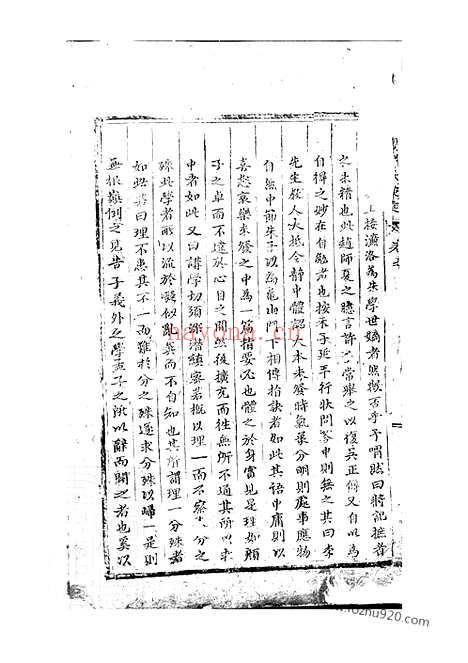 上接濂洛為朱學世嫡者然歟否乎予喟然曰將記摭者
之朱精也此趙師夏之臆言許子常舉之以復吳正傳又自以為
自得之妙在自勉者也按朱子延平行狀問答中則無之其曰李
先生教人大抵令静中體認大本未發時氣菉分明則處事應物
自然中節朱子以為龜山門下相傳指訣者如此其語中庸則以
喜怒哀樂未發之中為一篇指要必也體之於身實見是理如顏
子之卓而不違於心目之間然後擴充而往無所不通其所以求
中者如此又曰講學切須深潛縝密若概以理一而不察分之
殊此學者所以流於疑似亂真而不自知也其所謂理一分殊者
如此若曰理不患其不一而難於分之殊遂求分殊以歸一是則
無根顛倒之見告子義外之學孟子之所以辭而闢之者也奚以
nayona.cn
www.fozhu920.com